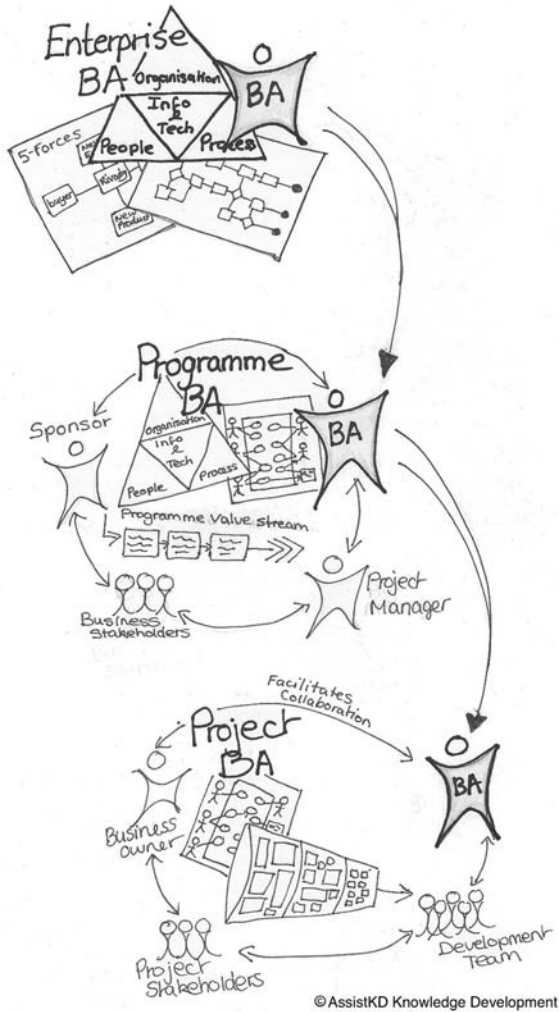 Enterprise
BA
BA
Organisation
Info
&
Tech
People
Process
5-Forces
Rivalry
buyer
New
Product
Programme
BA
BA
Sponsor
Organisation
Info
&
Tech
People
Process
Programme Value stream
Business
Stakeholders
Project
Manager
Facilitates
Collaboration
Project
BA
BA
Business
owner
Project
Stakeholders
Development
Team
©AssistKD Knowledge Development